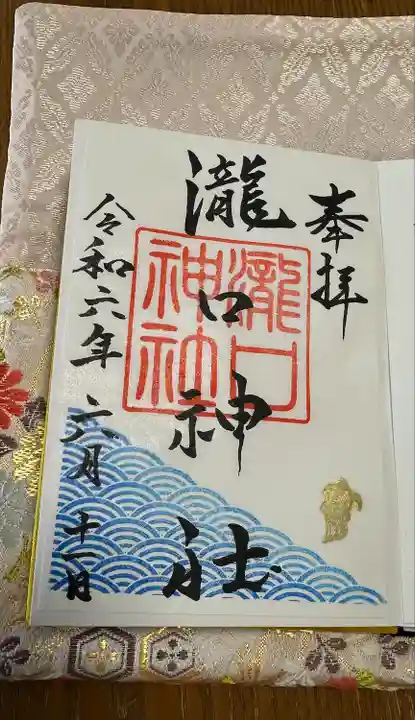 奉拝
瀧口神社
瀧口
神社
令和六年六月十一日